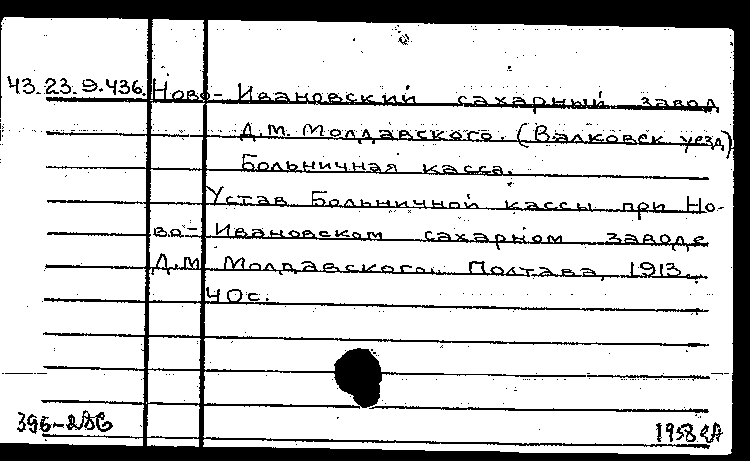 43.23.9.436. Ново-Ивановский сахарный завод
Д.М. Молдавского. (Валковск уезд)
Больничная касса.
Устав Больничной кассы при Но-
во-Ивановском сахарном заводе
Д.М Молдавского. Полтава, 1913.
40с.